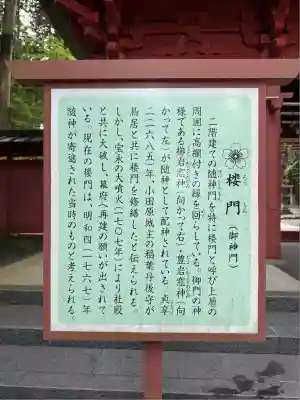 楼門
ろう
もん
(御神門)
二階建ての随神門を特に楼門と呼び上層の
周囲に高欄付きの縁を回らしている。御門の神
様である櫛岩窓神(向かって右)・豊岩窓神(向
かって左)が随神として配神されている。貞享
二(一六八五)年、小田原城主の稲葉丹後守が
鳥居と共に楼門を修繕したと伝えられる。
しかし、宝永の大噴火(一七〇七年)により社殿
と共に大破し、幕府へ再建の願いが出されて
いる。現在の楼門は、明和四(一七六七)年
随神が寄進された当時のものと考えられる。